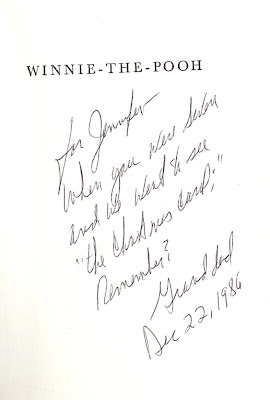 WINNIE-THE-POOH
For Jennifer
When you were seven
and we went to see
"the Christmas card;"
Remember?
Granddad
Dec 22, 1986